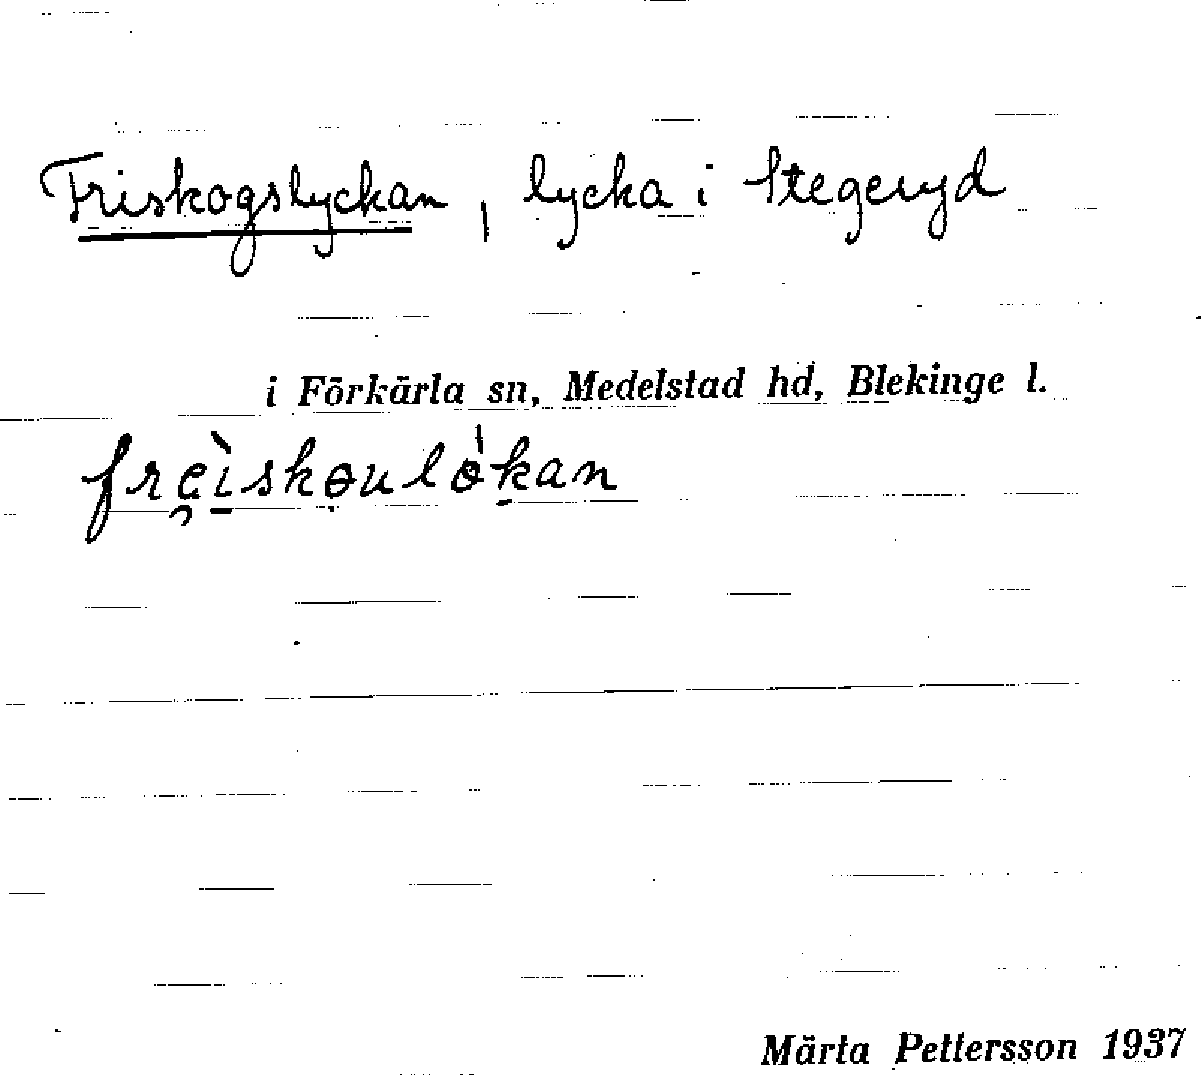 Friskogslyckan, lycka i Stegeryd
i Förkärla sn, Medelstad hd, Blekinge l.
fre̯ìskouló̱kan
Märta Pettersson 1937